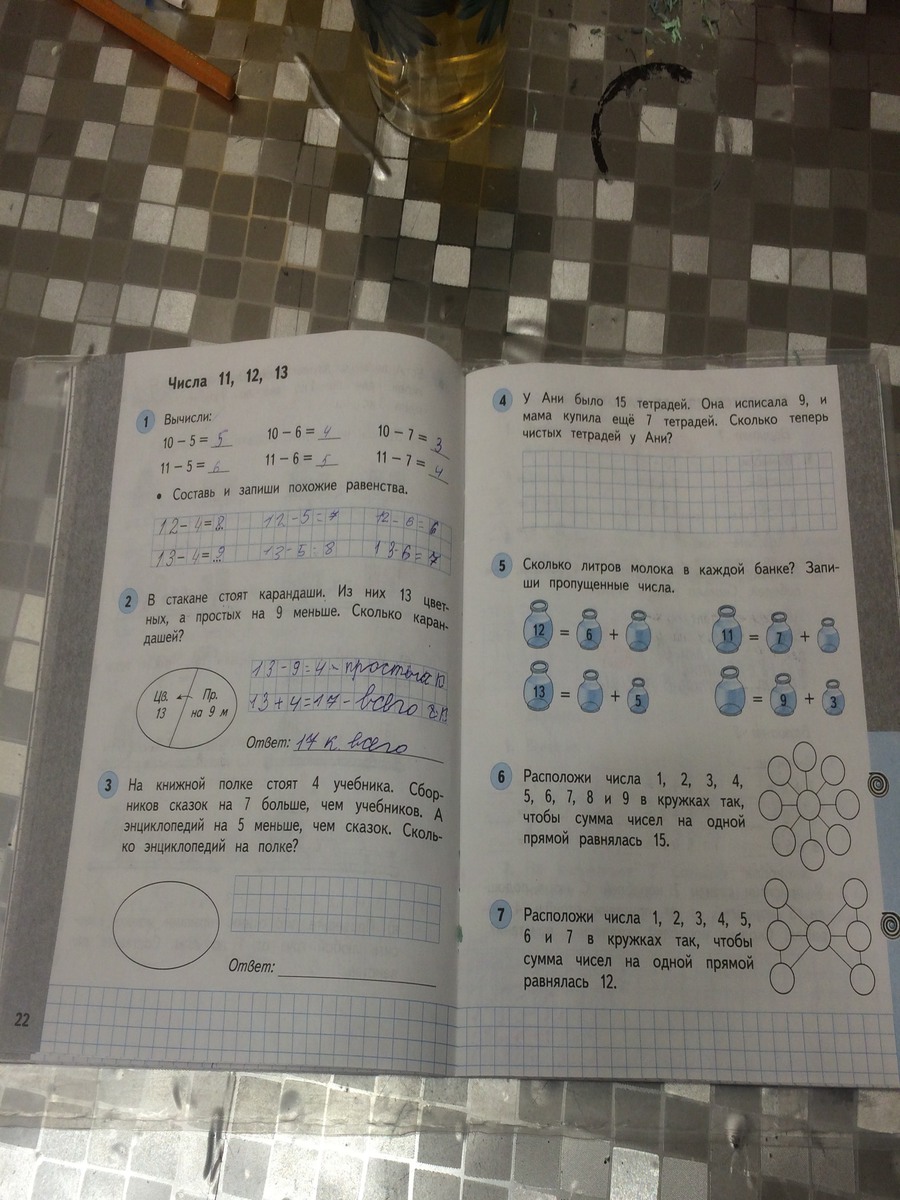 Числа 11, 12, 13
1 Вычисли:
10 – 5 = 5 10 – 6 = 4 10 – 7 = 3
11 – 5 = 6 11 – 6 = 5 11 – 7 = 4
• Составь и запиши похожие равенства.
12-4=8 12-5=7 12-6=6
13-4=9 13-5=8 13-6=7
2 В стакане стоят карандаши. Из них 13 цвет-
ных, а простых на 9 меньше. Сколько каран-
дашей?
Цв. Пр.
13 на 9 м
13-9=4-простых к
13+4=17-всего
Ответ: 17 к. всего
3 На книжной полке стоят 4 учебника. Сбор-
ников сказок на 7 больше, чем учебников. А
энциклопедий на 5 меньше, чем сказок. Сколь-
ко энциклопедий на полке?
Ответ:
22
4 У Ани было 15 тетрадей. Она исписала 9, и
мама купила ещё 7 тетрадей. Сколько теперь
чистых тетрадей у Ани?
5 Сколько литров молока в каждой банке? Запи-
ши пропущенные числа.
12 = 6 + 11 = 7 +
13 = + 5 = 9 + 3
6 Расположи числа 1, 2, 3, 4,
5, 6, 7, 8 и 9 в кружках так,
чтобы сумма чисел на одной
прямой равнялась 15.
7 Расположи числа 1, 2, 3, 4, 5,
6 и 7 в кружках так, чтобы
сумма чисел на одной прямой
равнялась 12.